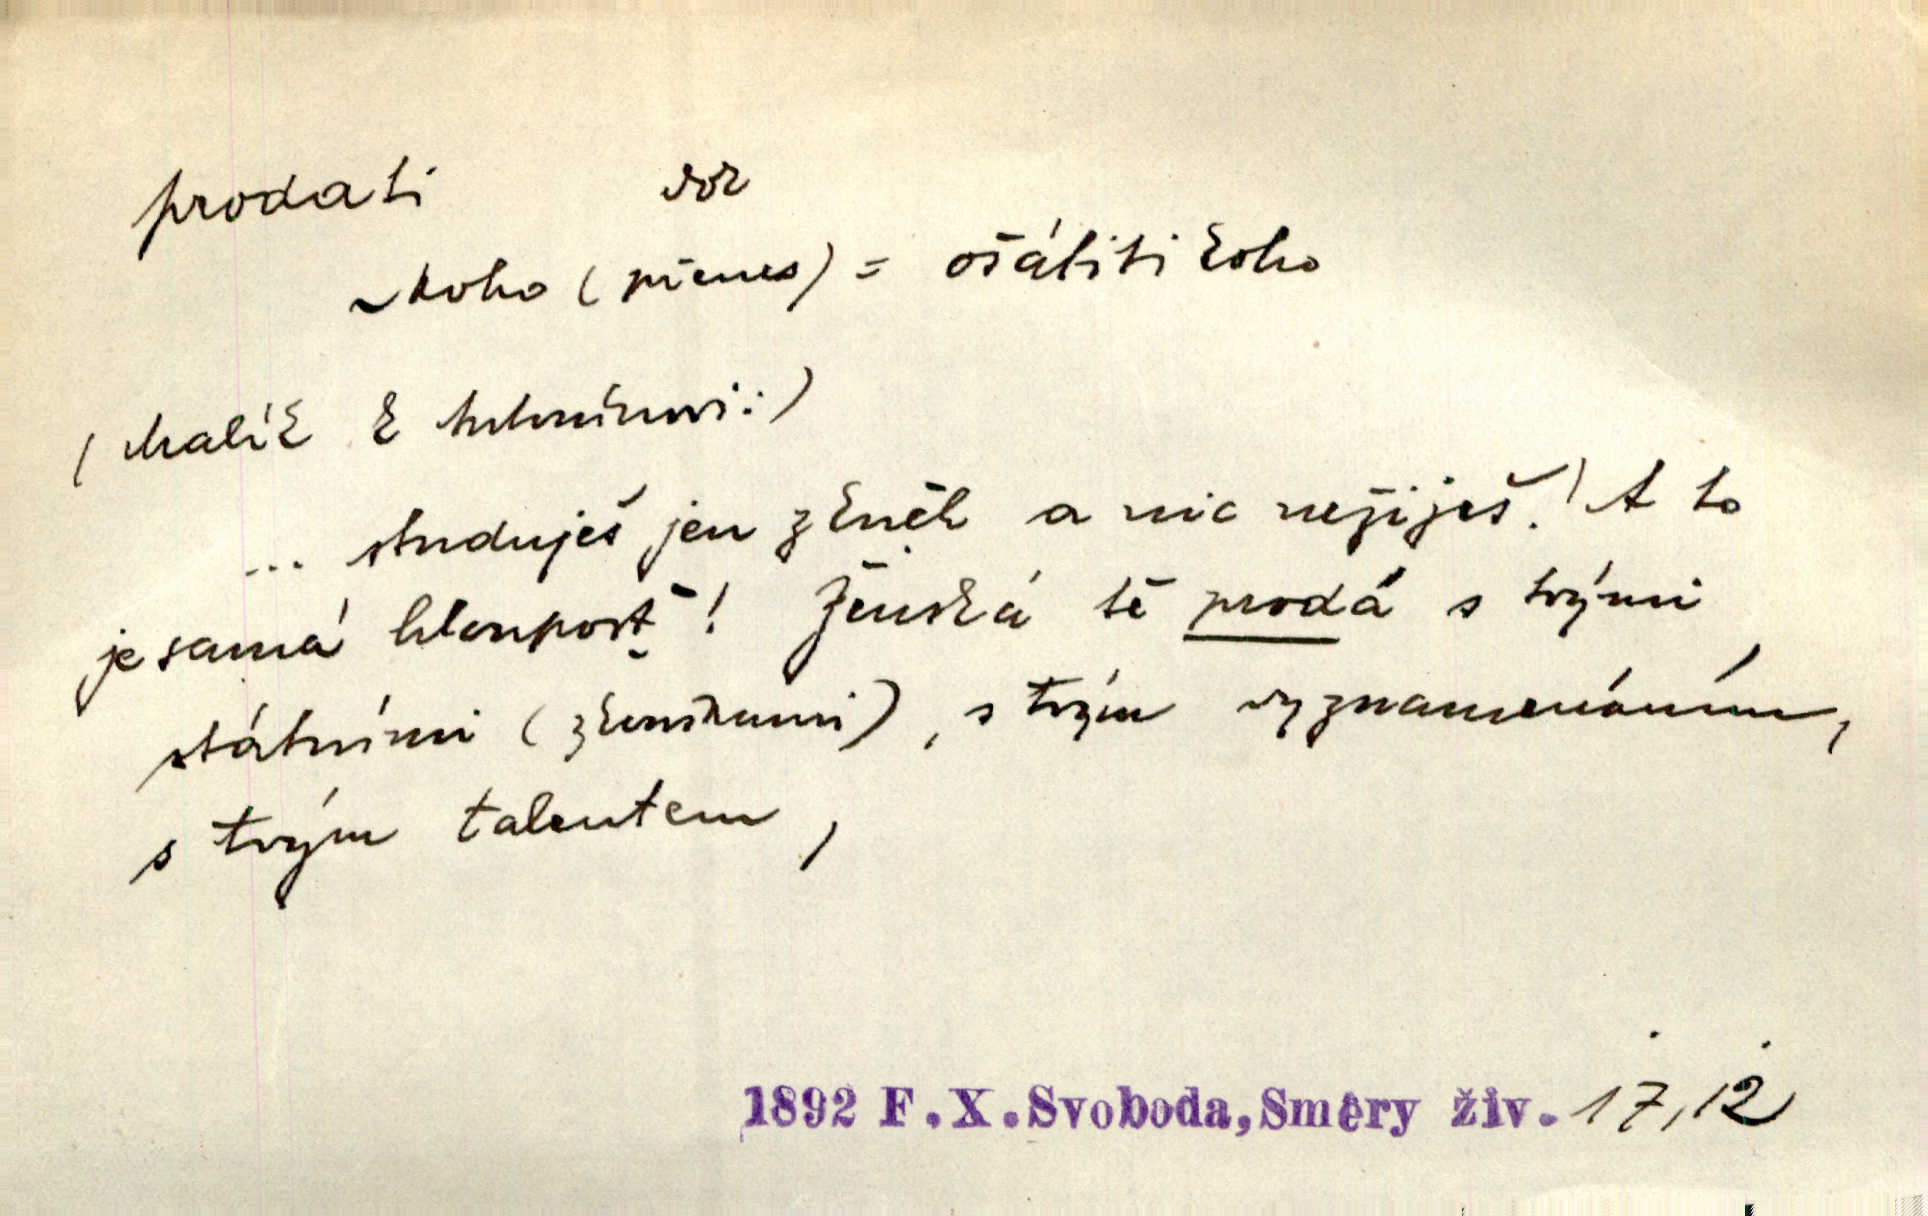 prodati
~koho (přenes) = ošáliti koho
(Malík k :)
... studuješ jen z kněh a nic nežiješ! A to
je samá hlouposť! Ženská tě prodá s tvými
státními (zkouškami), s tvým vyznamenáním,
s tvým talentem,
1892 F.X.Svoboda,Směry živ. 17,12